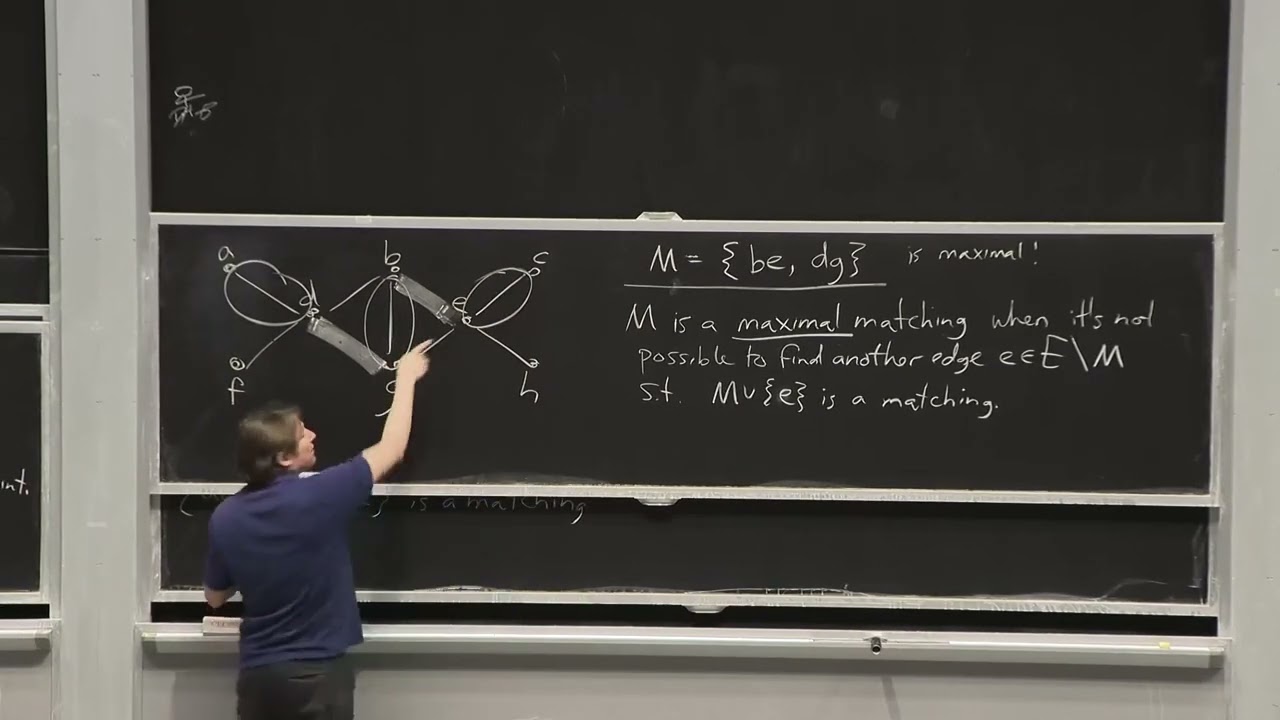 a
b
c
d
e
f
g
h
M = {be, dg} is maximal!
M is a maximal matching when it's not
possible to find another edge e∈E\M
s.t. M∪{e} is a matching.
int.
is a matching